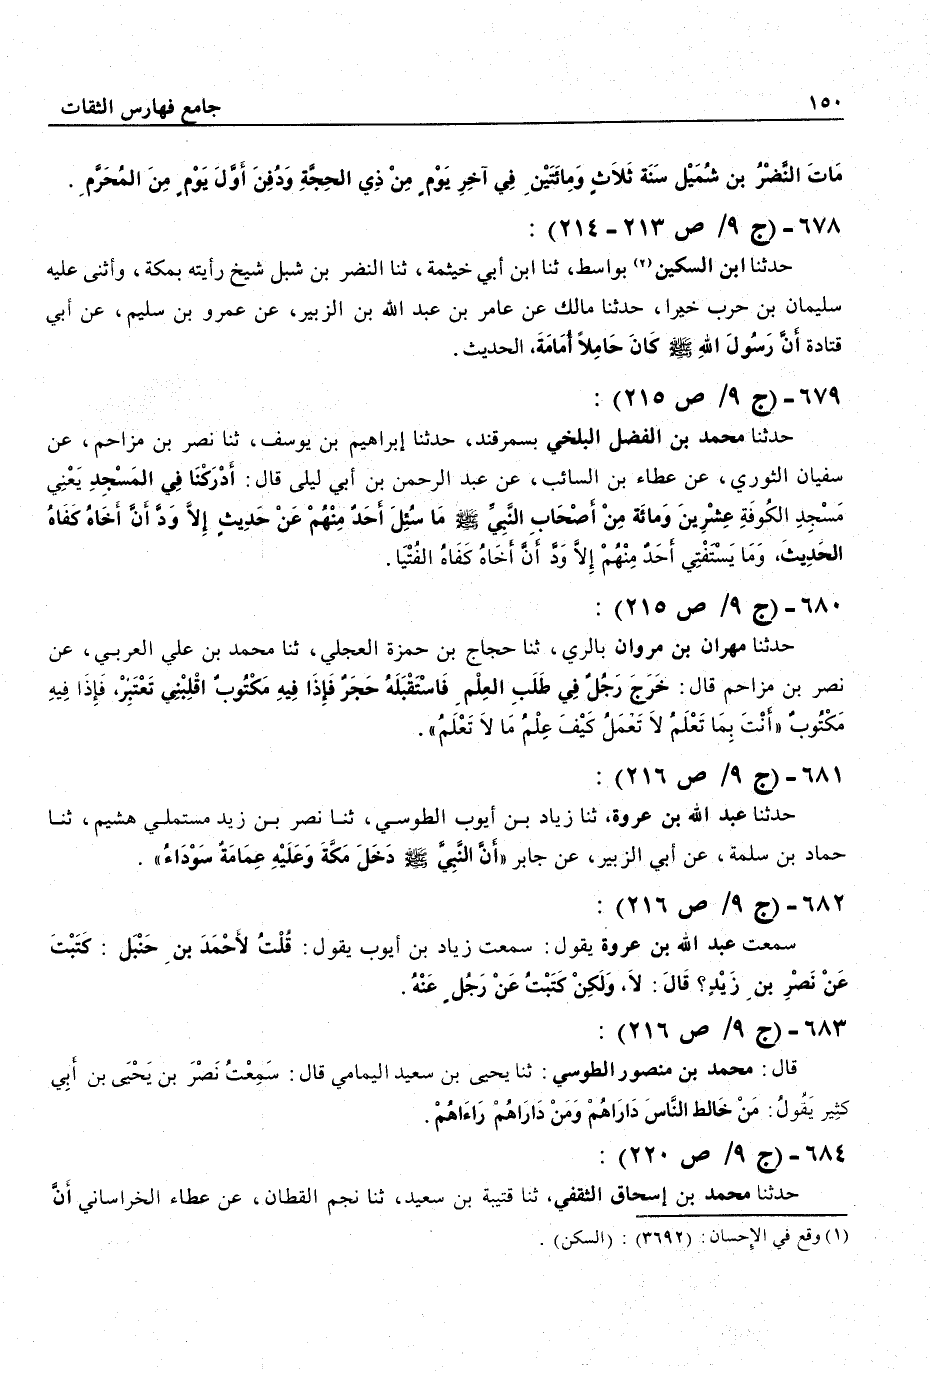 ١٥٠ جامع فهارس الثقات
مَاتَ النَّضْرُ بن شُمَيْل سَنَة ثَلاَثٍ وَمِائَتَيْنِ فِي آخِرِ يَوْمٍ مِنْ ذِي الحِجَّةِ وَدُفِنَ أَوَّلَ يَوْمٍ مِنَ المُحَرَّمِ .
٦٧٨ - (ج ٩/ ص ٢١٣ - ٢١٤) :
حدثنا ابن السكين(٢) بواسط، ثنا ابن أبي خيثمة، ثنا النضر بن شبل شيخ رأيته بمكة، وأثنى عليه
سليمان بن حرب خيرا، حدثنا مالك عن عامر بن عبد الله بن الزبير، عن عمرو بن سليم، عن أبي
قتادة أَنَّ رَسُولَ اللهِ ﷺ كَانَ حَامِلاً أُمَامَةَ، الحديث.
٦٧٩ - (ج ٩/ ص ٢١٥) :
حدثنا محمد بن الفضل البلخي بسمرقند، حدثنا إبراهيم بن يوسف، ثنا نصر بن مزاحم، عن
سفيان الثوري، عن عطاء بن السائب، عن عبد الرحمن بن أبي ليلى قال: أَدْرَكْنَا فِي المَسْجِدِ يَعْنِي
مَسْجِدِ الكُوفَةِ عِشْرِينَ وَمائَة مِنْ أَصْحَابِ النَّبِيِّ ﷺ مَا سُئِلَ أَحَدٌ مِنْهُمْ عَنْ حَدِيثٍ إِلاَّ وَدَّ أَنَّ أَخَاهُ كَفَاهُ
الحَدِيثَ، وَمَا يَسْتَفْتِي أَحَدٌ مِنْهُمْ إِلاَّ وَدَّ أَنَّ أَخَاهُ كَفَاهُ الفُتْيَا.
٦٨٠ - (ج ٩/ ص ٢١٥) :
حدثنا مهران بن مروان بالري، ثنا حجاج بن حمزة العجلي، ثنا محمد بن علي العربي، عن
نصر بن مزاحم قال: خَرَجَ رَجُلٌ فِي طَلَبِ العِلْمِ فَاسْتَقْبَلَهُ حَجَرٌ فَإِذَا فِيهِ مَكْتُوبٌ اقْلِبْنِي تَعْتَبِرْ، فَإِذَا فِيهِ
مَكْتُوبٌ «أَنْتَ بِمَا تَعْلَمُ لاَ تَعْمَلُ كَيْفَ عِلْمُ مَا لاَ تَعْلَمُ».
٦٨١ - (ج ٩/ ص ٢١٦) :
حدثنا عبد الله بن عروة، ثنا زياد بن أيوب الطوسي، ثنا نصر بن زيد مستملي هشيم، ثنا
حماد بن سلمة، عن أبي الزبير، عن جابر «أَنَّ النَّبِيَّ ﷺ دَخَلَ مَكَّةَ وَعَلَيْهِ عِمَامَةٌ سَوْدَاءُ» .
٦٨٢ - (ج ٩/ ص ٢١٦) :
سمعت عبد الله بن عروة يقول: سمعت زياد بن أيوب يقول: قُلْتُ لأَحْمَدَ بنِ حَنْبَلِ : كَتَبْتَ
عَنْ نَصْرِ بنِ زَيْدٍ؟ قَالَ: لاَ، وَلَكِنْ كَتَبْتُ عَنْ رَجُلٍ عَنْهُ.
٦٨٣ - (ج ٩/ ص ٢١٦) :
قال: محمد بن منصور الطوسي: ثنا يحيى بن سعيد اليمامي قال: سَمِعْتُ نَصْرَ بن يَحْيَى بن أَبِي
كثِيرِ يَقُولُ: مَنْ خَالطَ النَّاسَ دَارَاهُمْ وَمَنْ دَارَاهُمْ رَاءَاهُمْ.
٦٨٤ - (ج ٩/ ص ٢٢٠) :
حدثنا محمد بن إسحاق الثقفي، ثنا قتيبة بن سعيد، ثنا نجم القطان، عن عطاء الخراساني أَنَّ
(١) وقع في الإِحسان: (٣٦٩٢) : (السكن) .